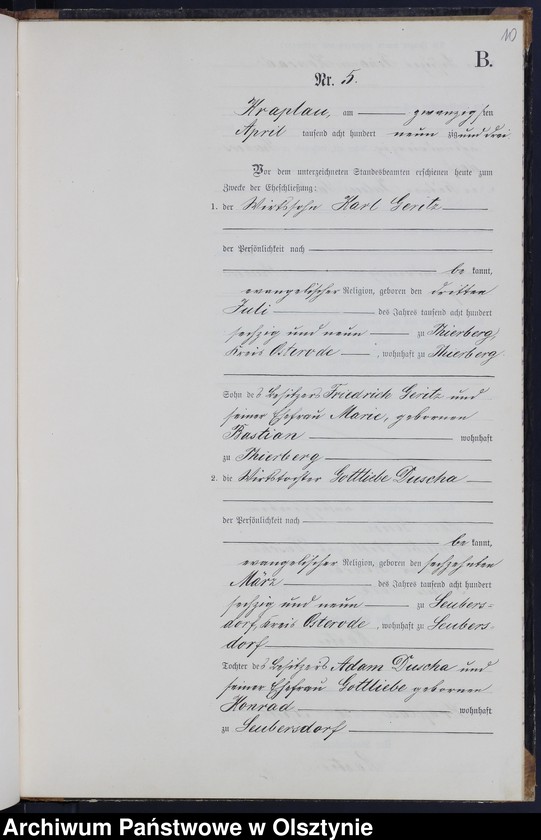 10
B.
Nr. 5.
Kraplau, am zwanzigsten
April tausend acht hundert neunzig und drei
Vor dem unterzeichneten Standesbeamten erschienen heute zum
Zwecke der Eheschließung:
1. der Wirtssohn Karl Geritz
der Persönlichkeit nach
bekannt,
evangelischer Religion, geboren den dritten
Juli des Jahres tausend acht hundert
sechzig und neun zu Thierberg,
Kreis Osterode, wohnhaft zu Thierberg
Sohn des Besitzers Friedrich Geritz und
seiner Ehefrau Marie, geborenen
Bastian wohnhaft
zu Thierberg
2. die Wirtstochter Gottliebe Duscha
der Persönlichkeit nach
bekannt,
evangelischer Religion, geboren den sechzehnten
März des Jahres tausend acht hundert
sechzig und neun zu Seubers-
dorf, Kreis Osterode, wohnhaft zu Seubers-
dorf
Tochter des Besitzers Adam Duscha und
seiner Ehefrau Gottliebe geborenen
Konrad wohnhaft
zu Seubersdorf
Archiwum Państwowe w Olsztynie